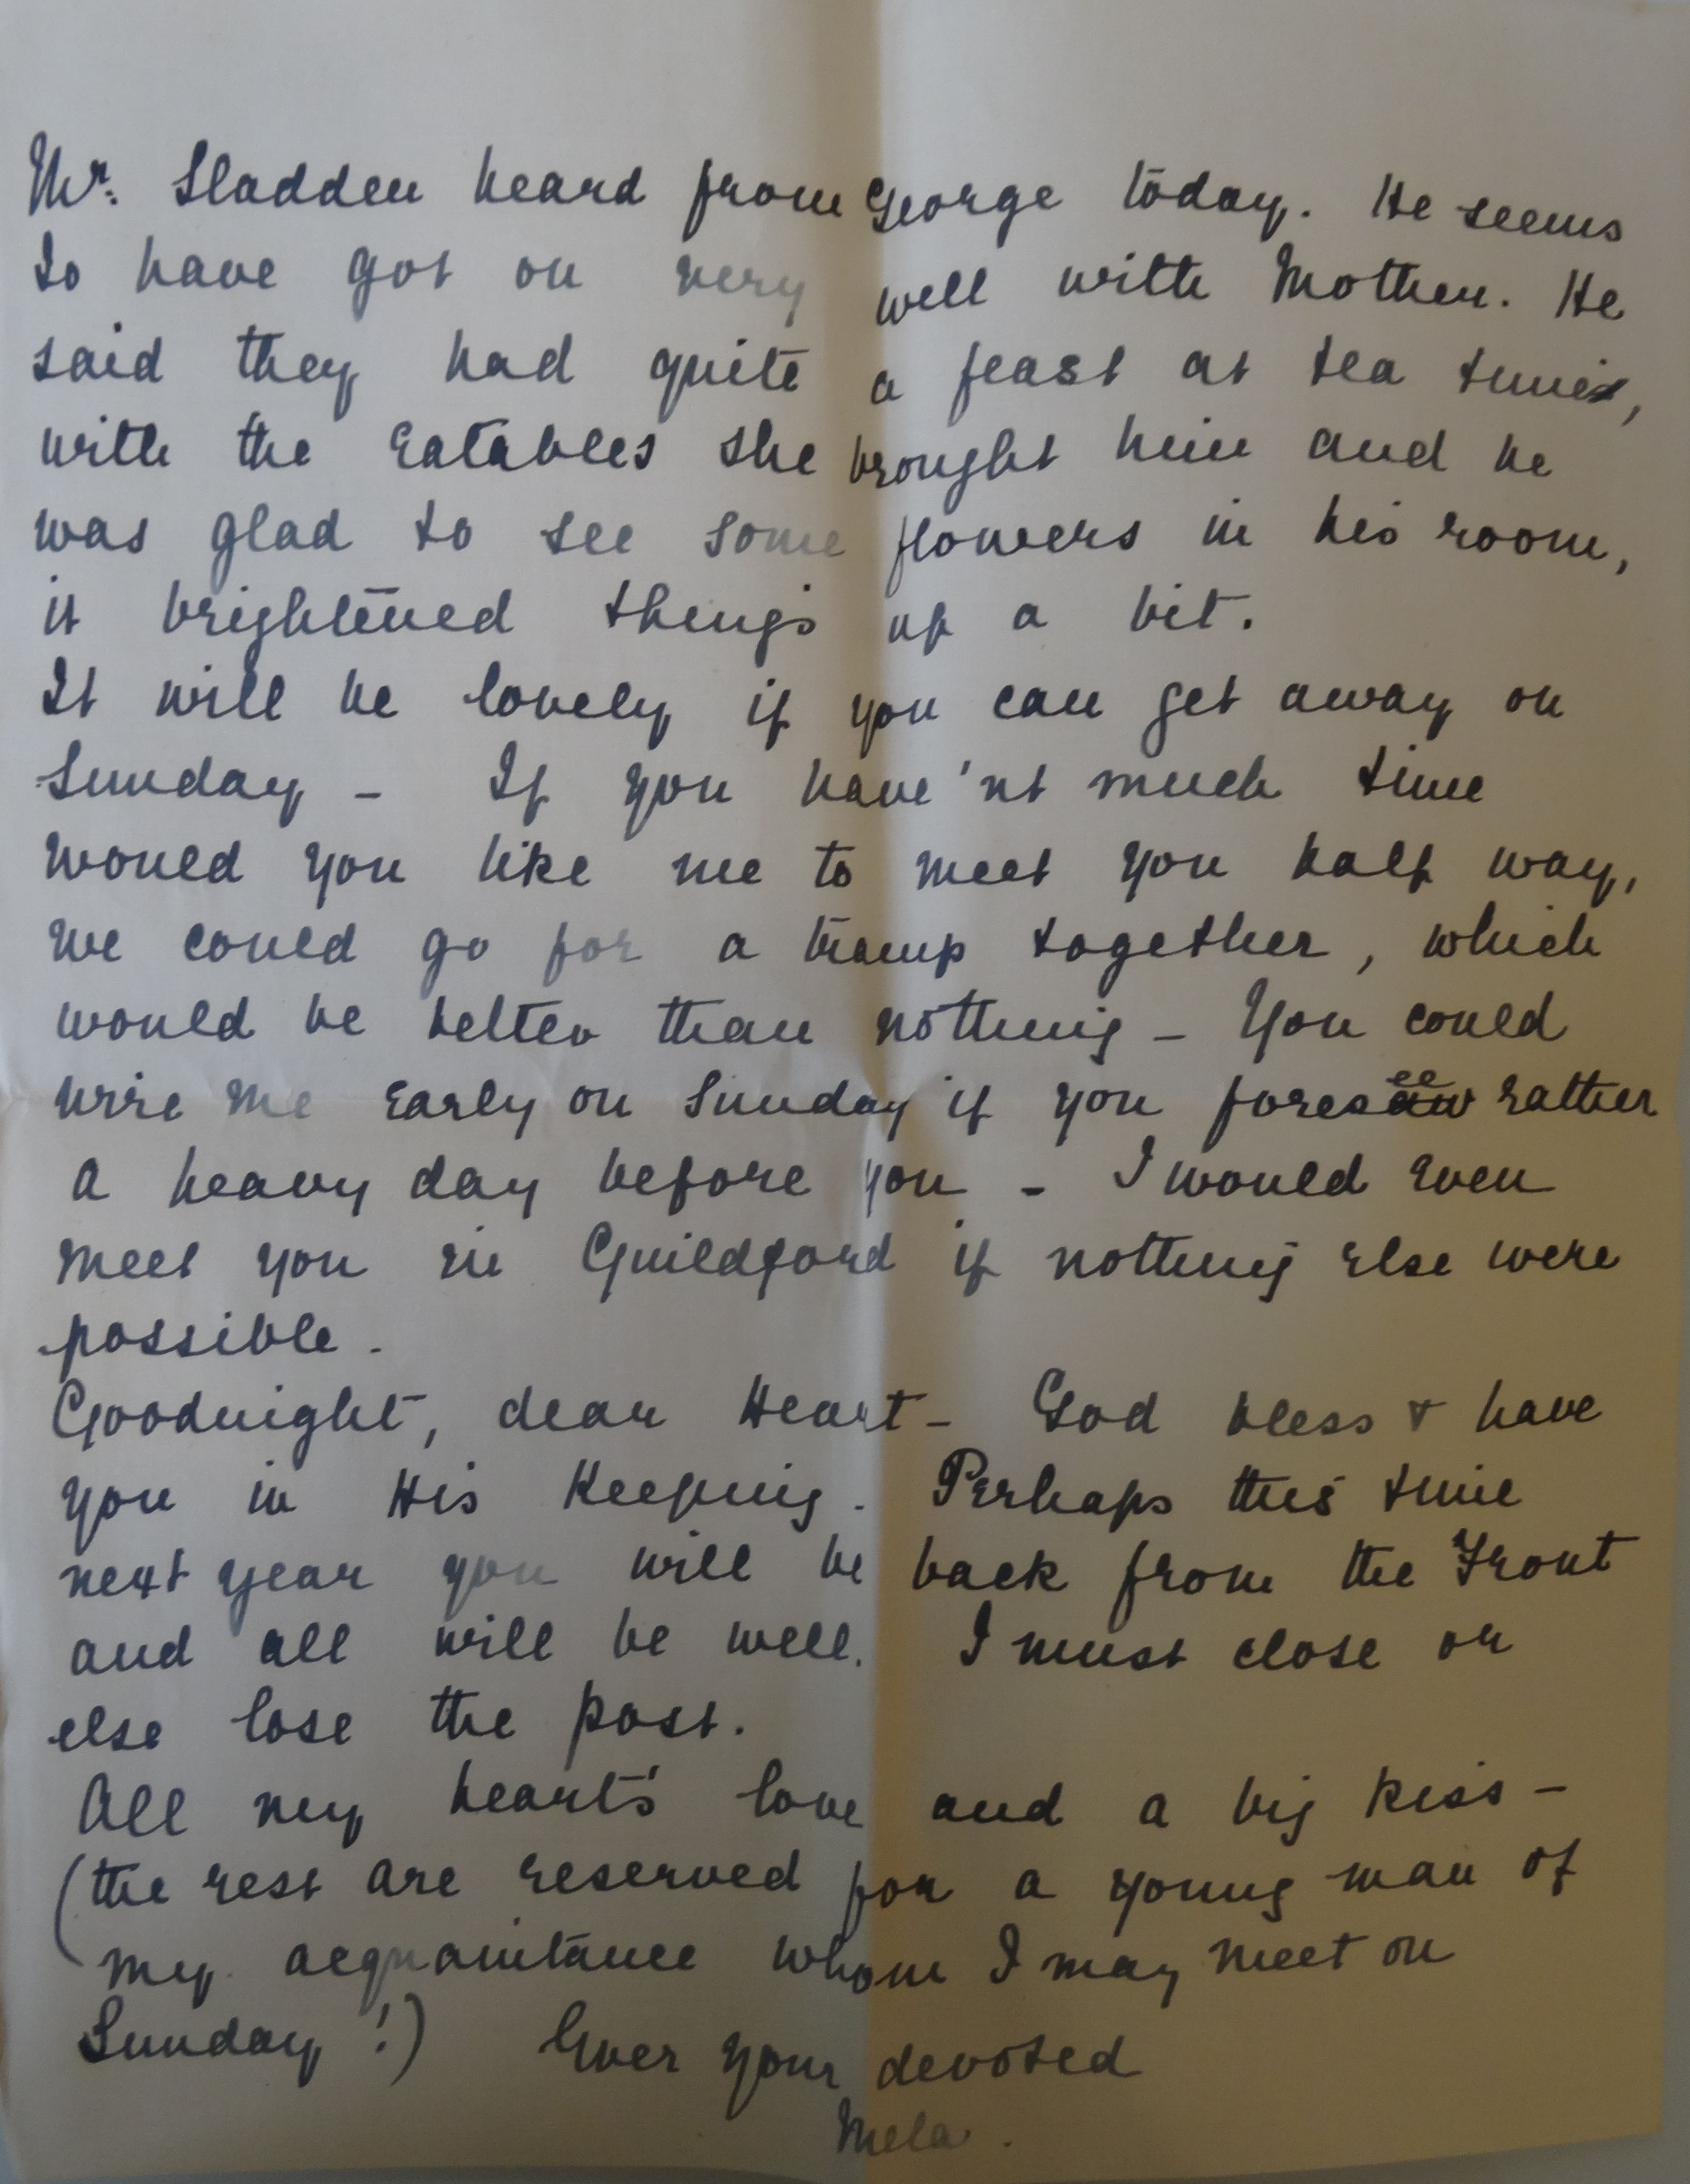 Mr. Sladden heard from George today. He seems
to have got on very well with Mother. He
said they had quite a feast at tea time,
with the eatables she brought him and he
was glad to see some flowers in his room,
it brightened things up a bit.
It will be lovely if you can get away on
Sunday – If you have'nt much time
would you like me to meet you half way,
we could go for a tramp together, which
would be better than nothing – You could
wire me early on Sunday if you foresee rather
a heavy day before you – I would even
meet you in Guildford if nothing else were
possible.
Goodnight, dear Heart – God bless & have
you in His Keeping. Perhaps this time
next year you will be back from the Front
and all will be well. I must close or
else lose the post.
All my heart's love and a big kiss –
(the rest are reserved for a young man of
my acquaintance whom I may meet on
Sunday!) Ever your devoted
Mela.